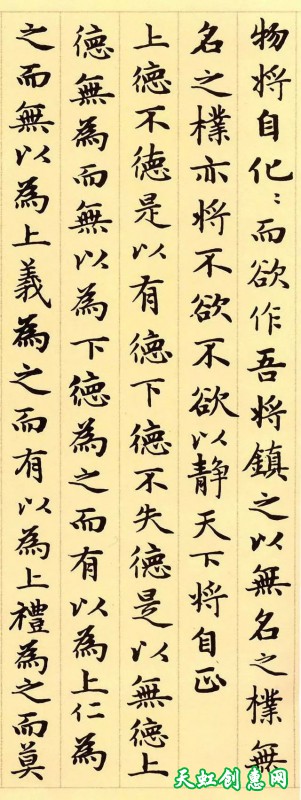 物将自化〻而欲作吾将鎮之以無名之樸無
名之樸亦将不欲不欲以静天下将自正
上德不德是以有德下德不失德是以無德上
德無為而無以為下德為之而有以為上仁為
之而無以為上義為之而有以為上禮為之而莫
天虹创惠网